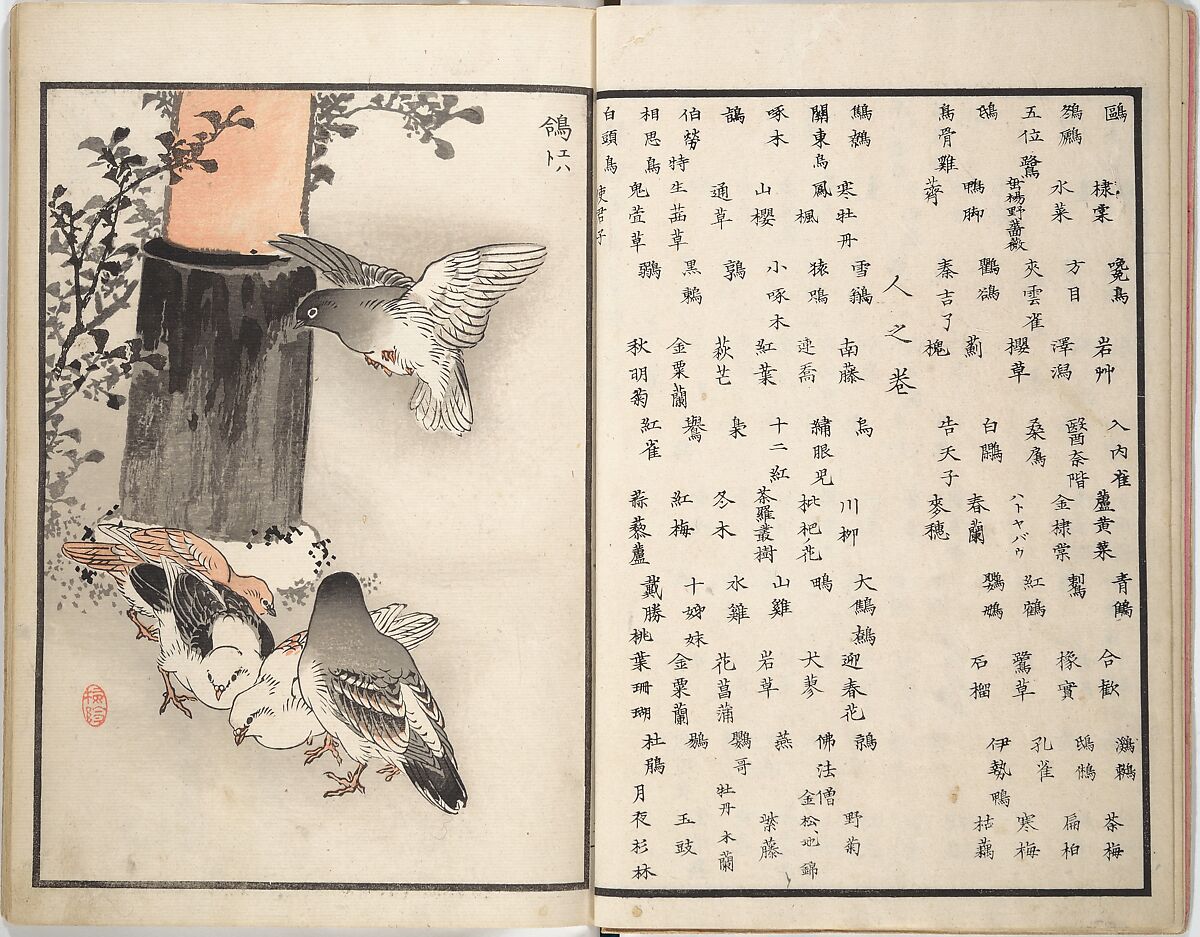 鷗 棣棠 鳧鳥 岩艸 入内雀 蘆黄菜 青鵐 合歓 鸂鶒 茶梅
水菜 方目 澤潟 金棣棠 橡實 扁柏
五位鷺 野薔薇 夾雲雀 櫻草 桑鳲 ハトヤバウ 紅鶴 鷺草 孔雀 寒梅
鴟 鴨脚 鸜鵒 薊 白鷳 春蘭 鸚鵡 石榴 伊勢鴨 枯藕
烏骨雞 薺 秦吉了 槐 告天子 麥穗
人之巻
鷦鷯 寒牡丹 雪鶲 南藤 烏 川柳 大鷦鷯 迎春花 鶉 野菊
關東鳥 楓 猿鳴 連喬 繡眼児 枇杷ノ花 鴫 犬蓼 佛法僧 金松、地錦
啄木 山櫻 小啄木 紅葉 十二紅 茶羅叢樹 山雞 岩草 燕 紫藤
鵠 通草 鶉 荻芒 梟 冬木 水雞 花菖蒲 鸚哥 牡丹 木蘭
伯勞 特生茁草 黒鶫 金粟蘭 鷽 紅梅 十姊妹 金粟蘭 鶸 玉豉
相思鳥 鬼萱草 鶸 秋明菊 紅雀 蒜藜蘆 戴勝 桃葉珊瑚 杜鵑 月夜杉林
白頭鳥 使君子
鴿 エハト